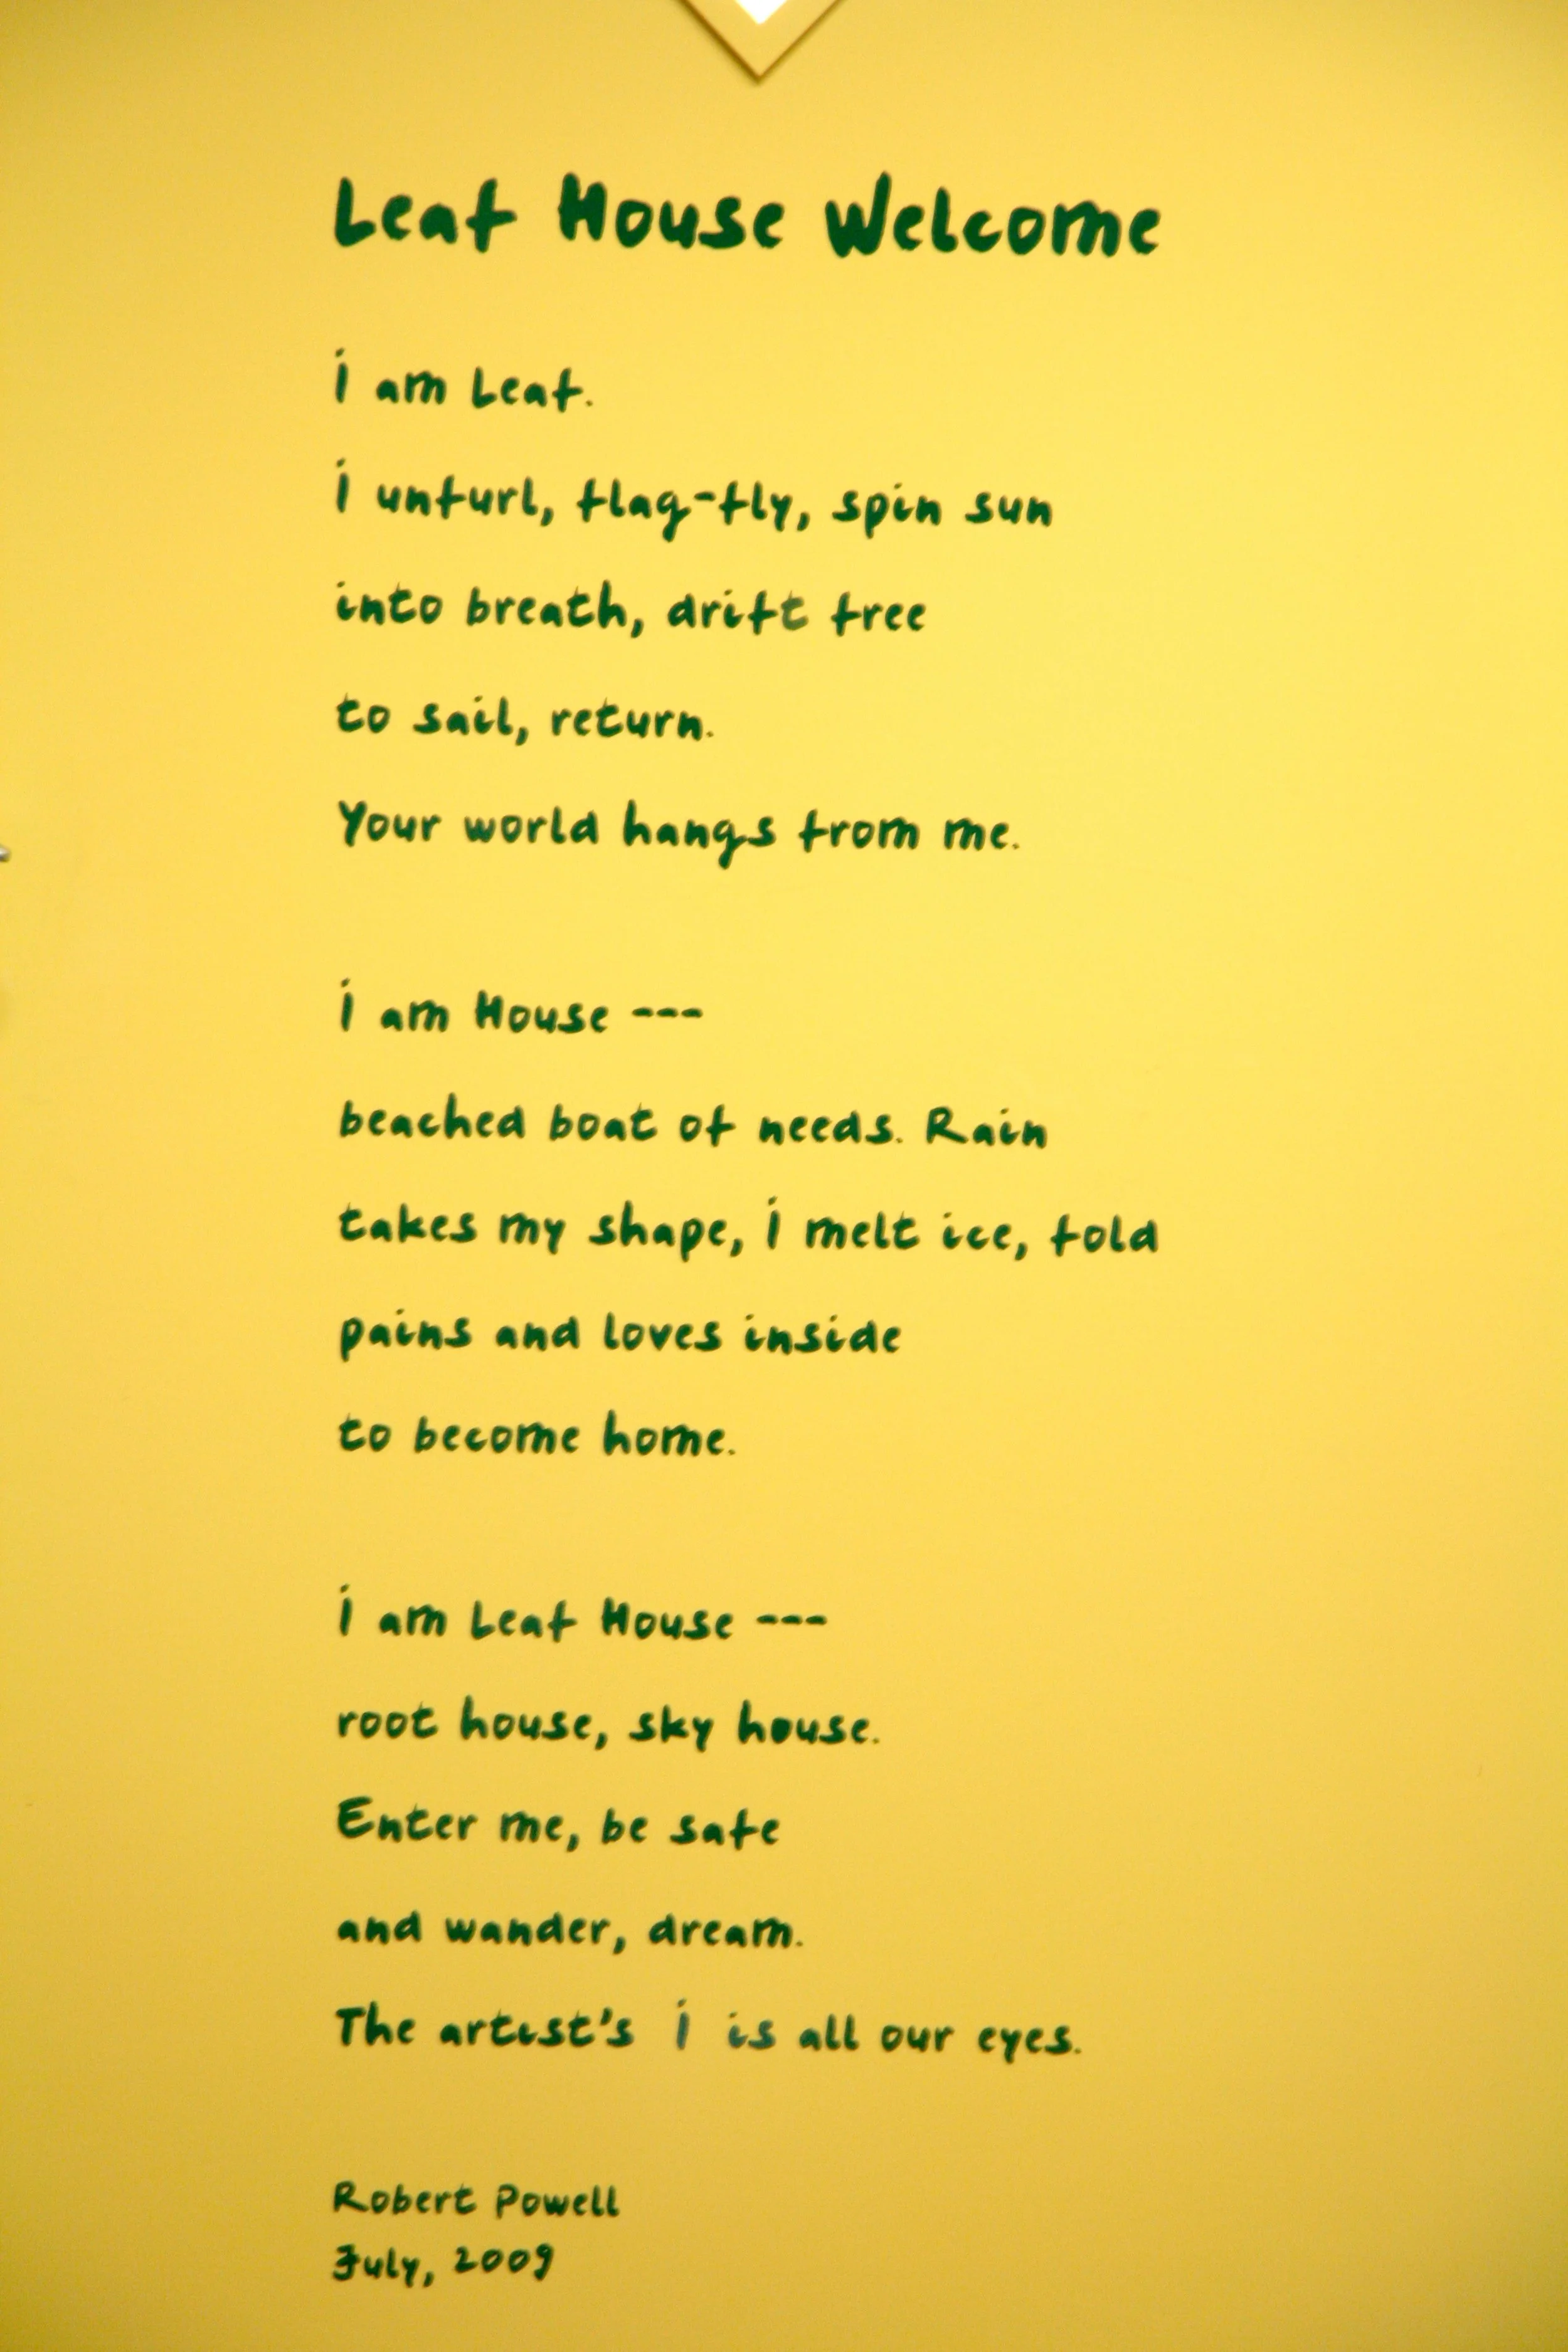 Leaf House Welcome
i am Leaf.
i unfurl, flag-fly, spin sun
into breath, drift free
to sail, return.
Your world hangs from me.
i am House ---
beached boat of needs. Rain
takes my shape, i melt ice, fold
pains and loves inside
to become home.
i am Leaf House ---
root house, sky house.
Enter me, be safe
and wander, dream.
The artist's i is all our eyes.
Robert Powell
July, 2009